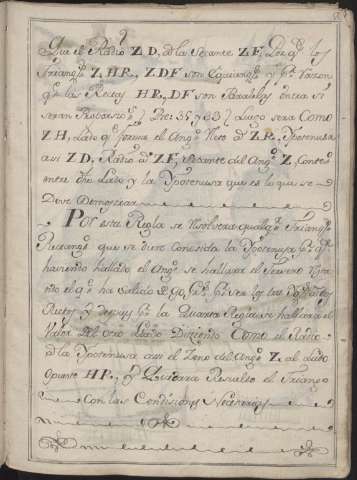 Que el Radio Z D, a la Secante Z F, Porq.e los
Triang.s Z, H R, Z D F son Equiang.s y P.r razon
q.e las Rectas H R, D F son Paralelas entra si
seran Rectas y luego sera Como
Z H, Lado q.e forma el Ang.o Recto a Z R, Ypotenusa
assi Z D, Radio a Z F, Secante del Ang.o Z, Conten.
entre dho Lado y la Ypotenusa que es lo que se
Deve Demostrar
Por esta Regla se Resolvera qualq.r Triang.o
Rectang.o que se diere Conosida la Ypotenusa
haviendo hallado el Ang.o se hallara el tersero
do el q.e ha salido de 90 los tres
Rectos y despues P.r la Quarta Regla se hallara el
Valor Del otro Lado Diziendo Como el Radio
a la Ypotenusa assi el Zeno del Ang.o Z, al Lado
Opuesto H R, y Quedara Resuelto el Triang.o
Con las Condisiones Nesesarias